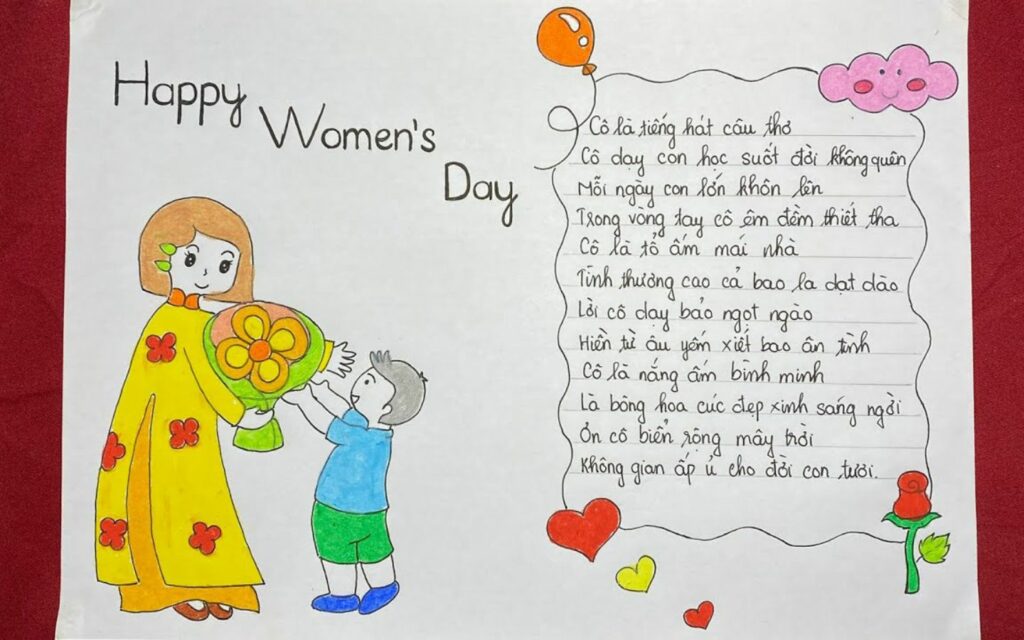 Happy
Women's
Day
Cô là tiếng hát câu thơ
Cô dạy con học suốt đời không quên
Mỗi ngày con lớn khôn lên
Trong vòng tay cô êm đềm thiết tha
Cô là tổ ấm mái nhà
Tình thương cao cả bao la dạt dào
Lời cô dạy bảo ngọt ngào
Hiền từ âu yếm xiết bao ân tình
Cô là nắng ấm bình minh
Là bông hoa cúc đẹp xinh sáng ngời
Ơn cô biển rộng mây trời
Không gian ấp ủ cho đời con tươi.